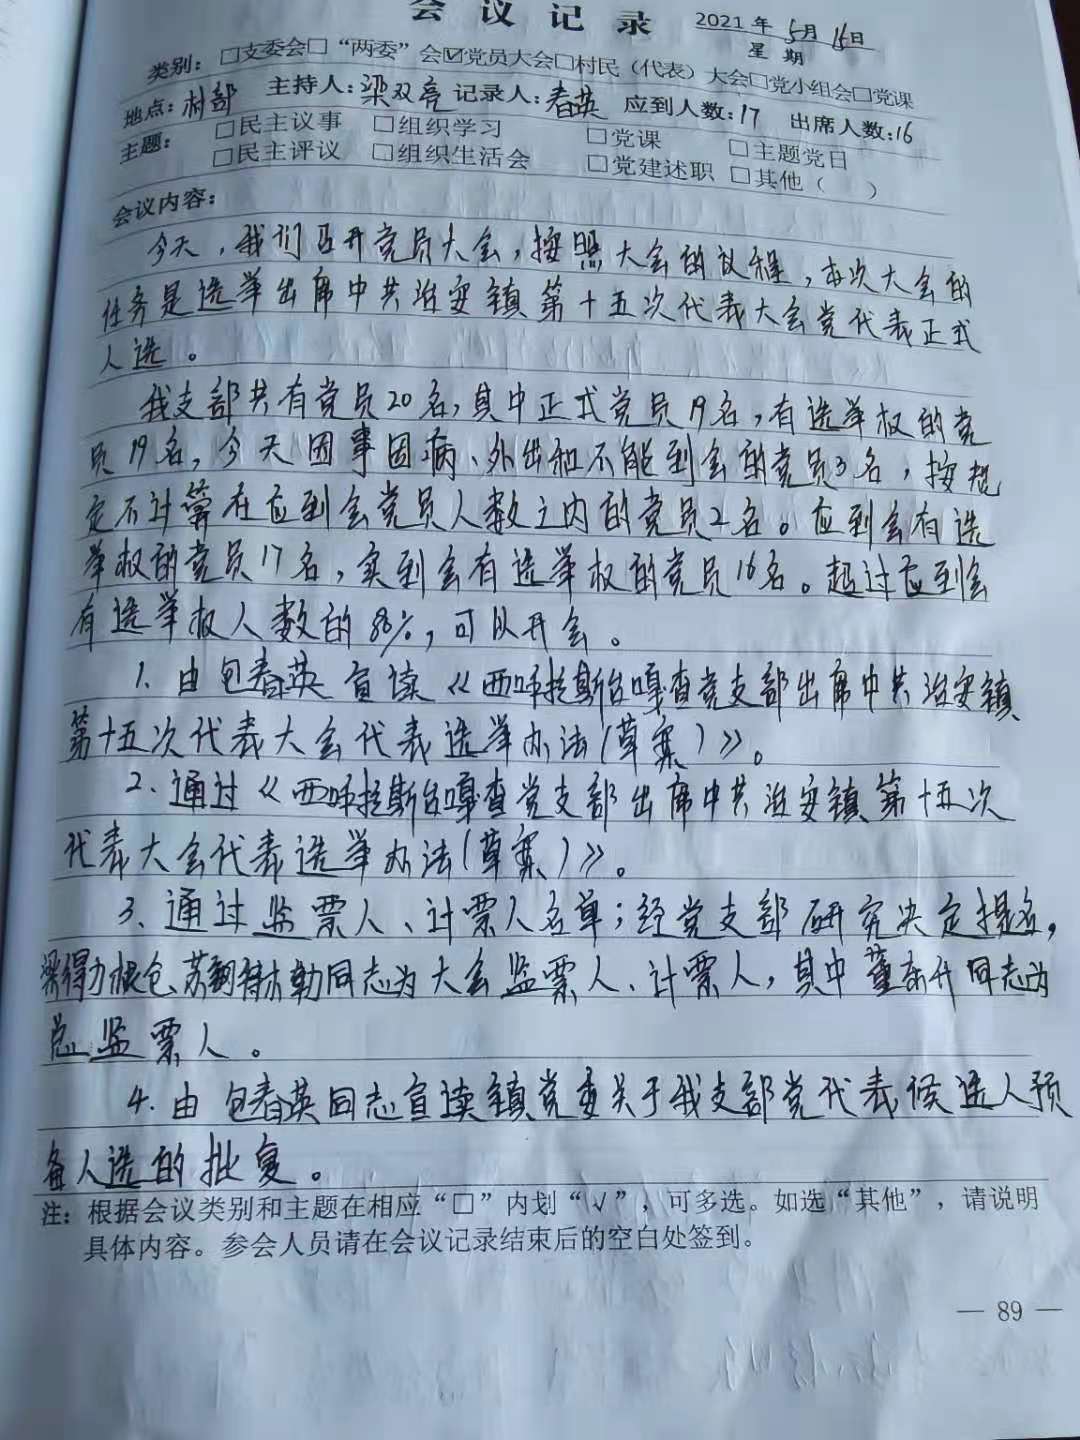 会议记录 2021年5月16日
星期
类别：□支委会□“两委”会☑党员大会□村民（代表）大会□党小组会□党课
地点：村部 主持人：梁双亮 记录人：春英 应到人数：17 出席人数：16
主题： □民主议事 □组织学习 □党课 □主题党日
□民主评议 □组织生活会 □党建述职 □其他（ ）
会议内容：
今天，我们召开党员大会，按照大会的议程，本次大会的
任务是选举出席中共治安镇第十五次代表大会党代表正式
人选。
我支部共有党员20名，其中正式党员19名，有选举权的党
员19名，今天因事因病、外出和不能到会的党员3名，按规
定不计算在应到会党员人数之内的党员2名。应到会有选
举权的党员17名，实到会有选举权的党员16名。超过应到会
有选举权人数的88%，可以开会。
1、由包春英宣读《西呼拉斯台嘎查党支部出席中共治安镇
第十五次代表大会代表选举办法(草案)》。
2、通过《西呼拉斯台嘎查党支部出席中共治安镇第十五次
代表大会代表选举办法(草案)》。
3、通过监票人、计票人名单；经党支部研究决定提名，
梁得力根仓、同志为大会监票人、计票人，其中董东升同志为
总监票人。
4、由包春英同志宣读镇党委关于我支部党代表候选人预
备人选的批复。
注：根据会议类别和主题在相应“□”内划“√”，可多选。如选“其他”，请说明
具体内容。参会人员请在会议记录结束后的空白处签到。
— 89 —